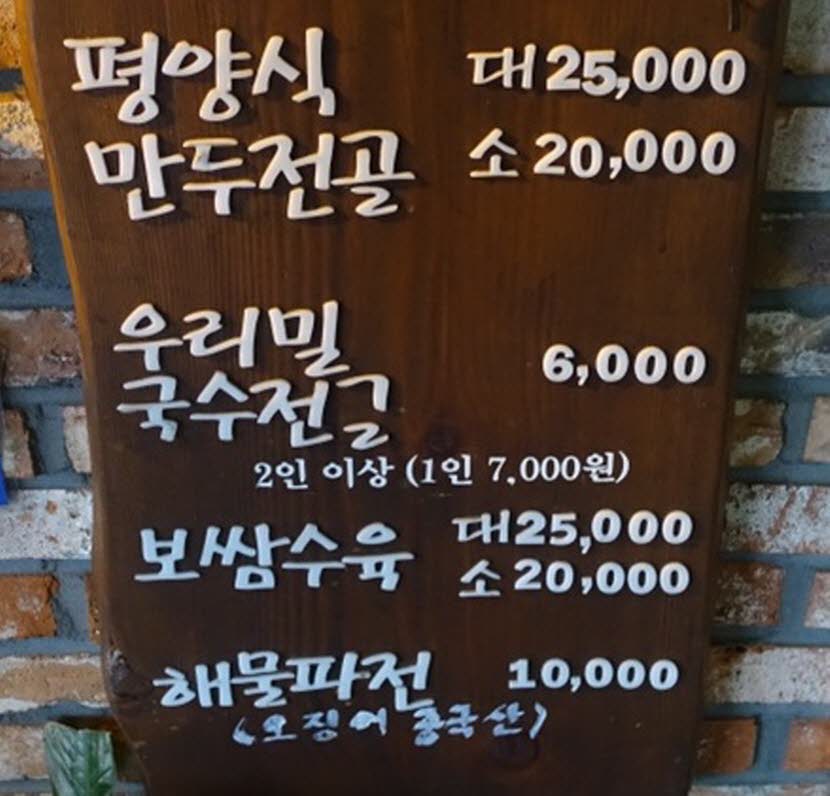 평양식 대 25,000
만두전골 소 20,000
우리밀
국수전골 6,000
2인 이상 (1인 7,000원)
보쌈수육 대 25,000
소 20,000
해물파전 10,000
(오징어 중국산)